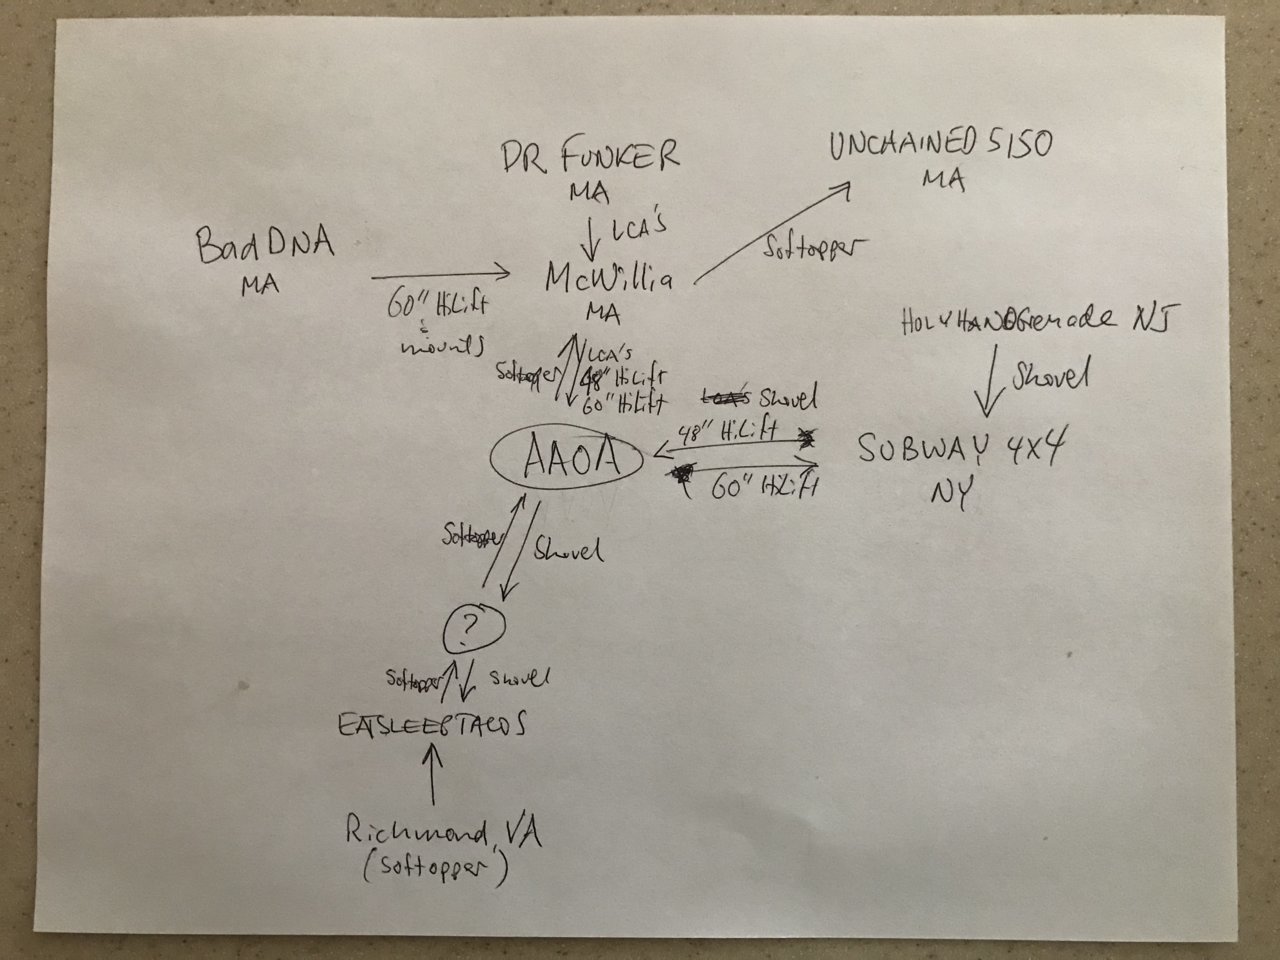 DR FUNKER
MA
UNCHAINED 5150
MA
LCA's
Softopper
BadDNA
MA
60" HiLift
&
mounts
McWillia
MA
HOLYHANDGrenade NJ
Shovel
Softopper
LCA's
48" HiLift
60" HiLift
LCA's Shovel
48" HiLift
AAOA
SUBWAY 4x4
NY
60" HiLift
Softopper
Shovel
?
Softopper
Shovel
EATSLEEPTACOS
Richmond, VA
(Softopper)